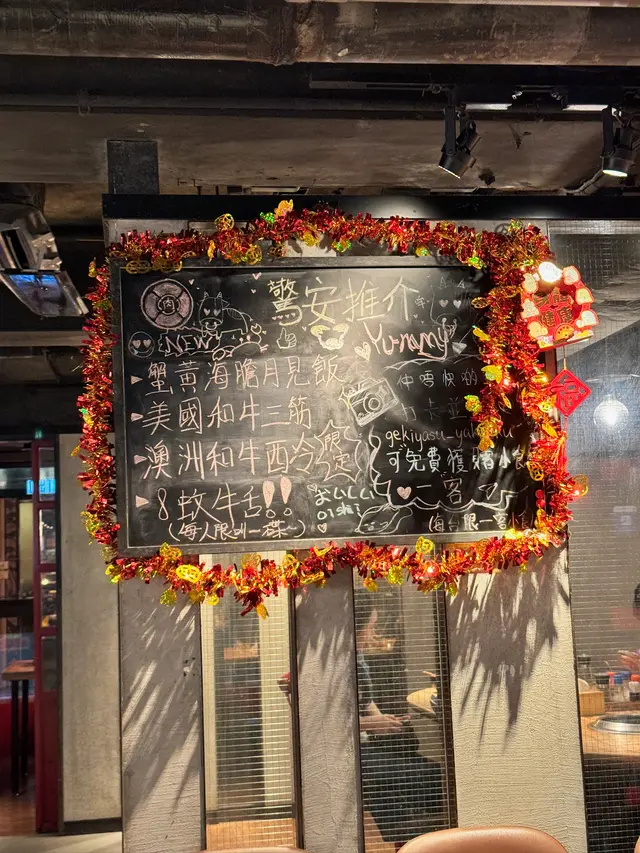 肉
驚安推介
NEW
Yummy!
蟹黃海膽月見飯
美國和牛三筋
澳洲和牛西冷
限定
8蚊牛舌!!
(每人限叫一碟~)
おいしい
仲唔快啲
打卡並
gekiyasu_yak
可免費獲贈小食
一客
(每台限一客小食
福